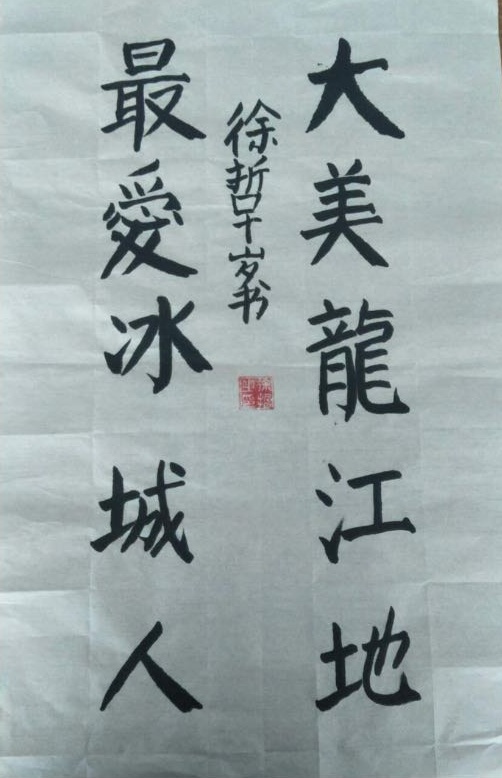 大美龍江地
徐哲早岁书
最愛冰城人